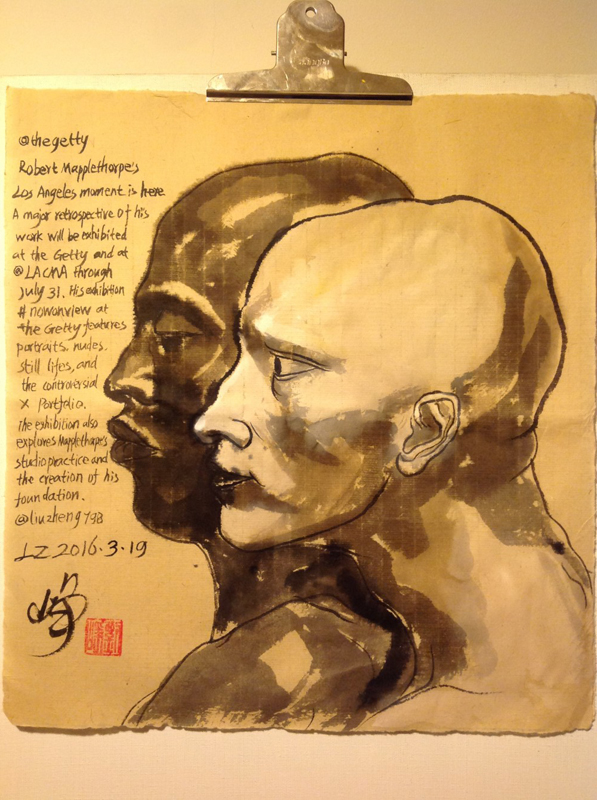 @thegetty
Robert Mapplethorpe's
Los Angeles moment is here.
A major retrospective of his
work will be exhibited
at the Getty and at
@LACMA through
July 31. His exhibition
#nowonview at
the Getty features
portraits. nudes.
still lifes, and
the controversial
X Portfolio.
The exhibition also
explores Mapplethorpe's
studio practice and
the creation of his
foundation.
@liuzheng798
LZ 2016.3.19